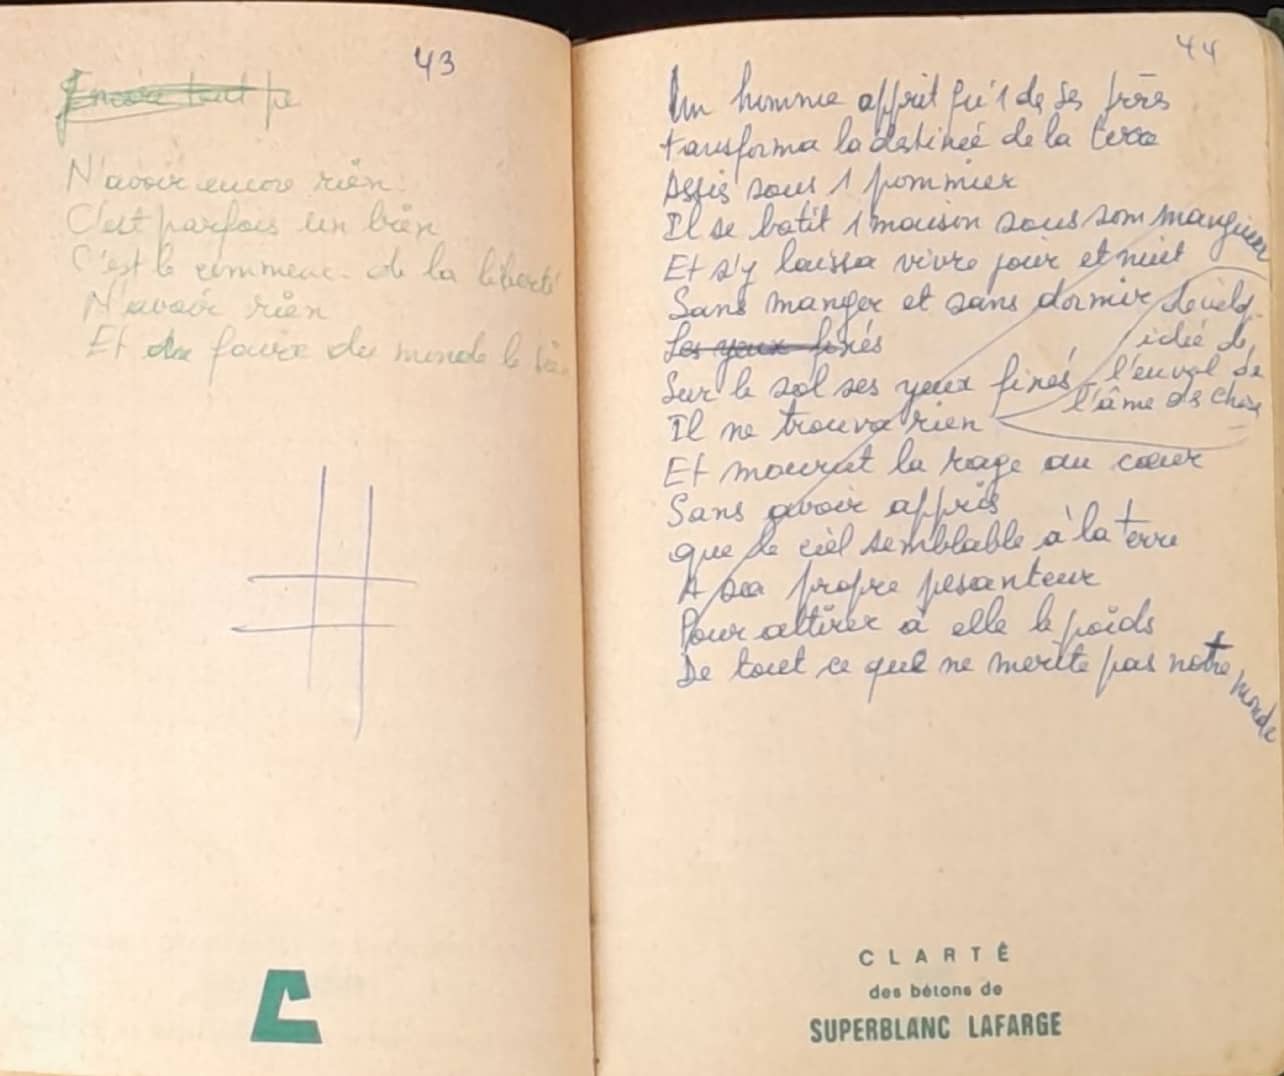 43
Encore tout pe
N'avoir encore rien
C'est parfois un bien
C'est le commenc. de la liberté
N'avoir rien
Et faire du monde le sien
44
Un homme apprit qu'1 de ses frères
transforma la destinée de la terre
Assis sous 1 pommier
Il se batit 1 maison sous son manguier
Et s'y laissa vivre jour et nuit
Sans manger et sans dormir
Les yeux fixés
Sur le sol ses yeux fixés
idée de
l'envol de
l'âme des choses
Il ne trouva rien
Et mourut la rage au cœur
Sans avoir appris
que le ciel semblable à la terre
A sa propre pesanteur
Pour attirer à elle le poids
De tout ce qui ne merite pas notre monde
CLARTÉ
des bétons de
SUPERBLANC LAFARGE